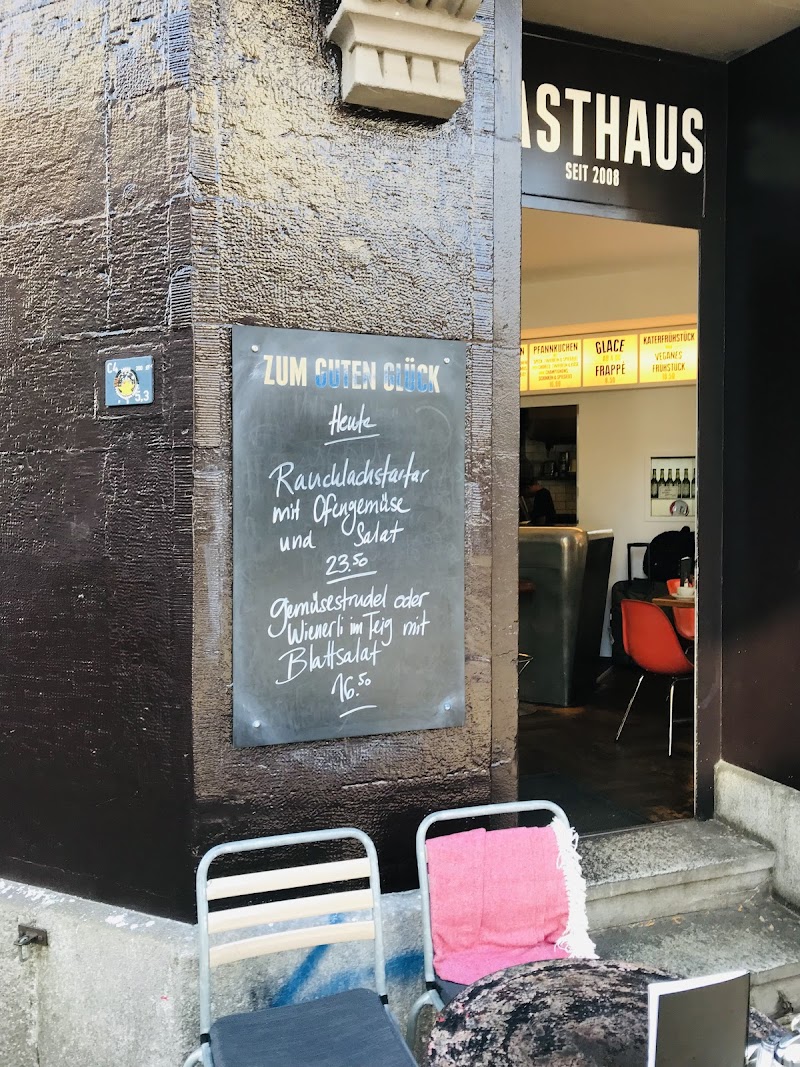 ASTHAUS
SEIT 2008
PFANNKUCHEN
GLACE
FRAPPÉ
KATERFRÜHSTÜCK
VEGANES
FRÜHSTÜCK
ZUM GUTEN GLÜCK
Heute
Rauchlachstartar
mit Ofengemüse
und Salat
23.50
Gemüsestrudel oder
Wienerli im Teig mit
Blattsalat
16.50
C4
5.3